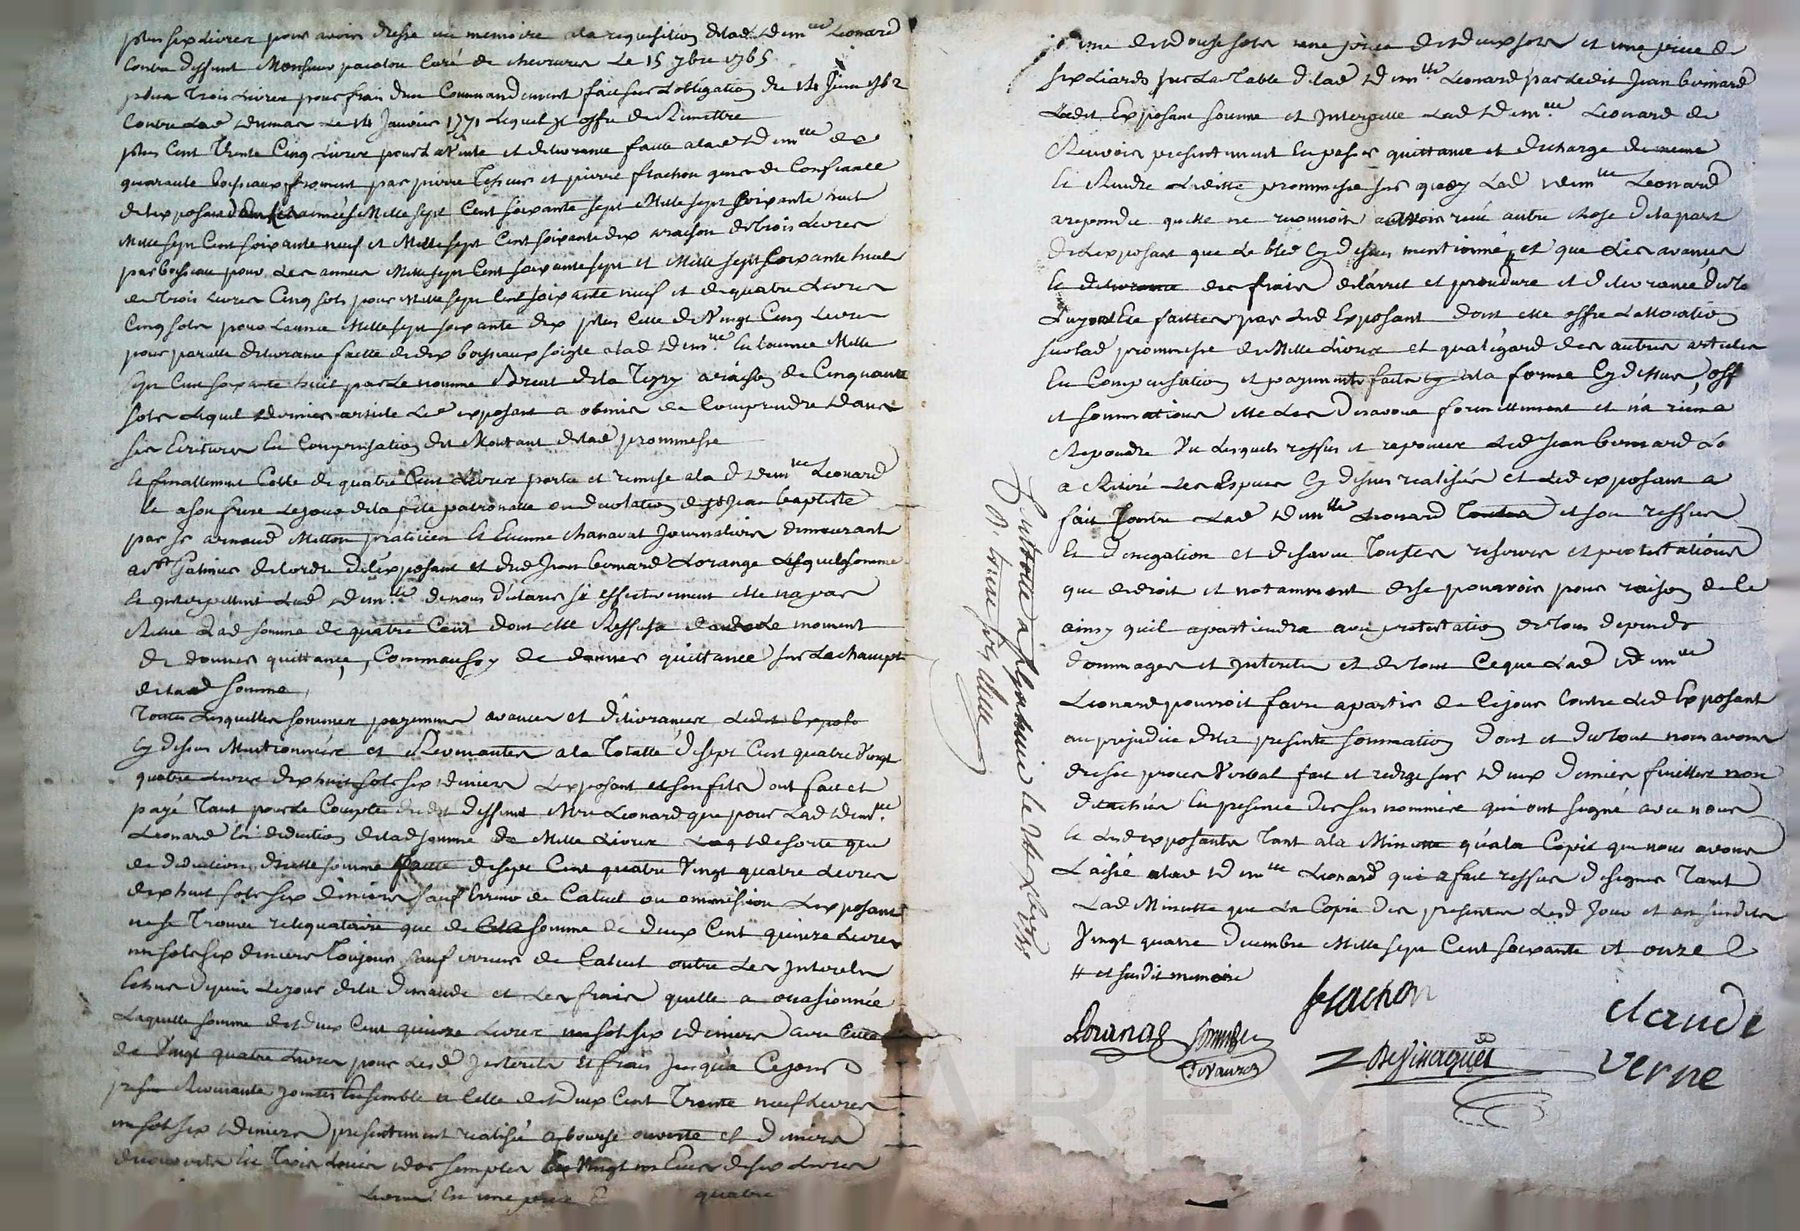 plus six Livres pour avoir dressé un memoire a la requisition de lad. d demlle Leonard
Contre deffunt Monsieur curé de chevrieres Le 15 9bre 1765
plus Trois Livres pour frais d'un Commandement fait sur L'obligation du 14 Juin 1762
Contre Led Le 14 Janvier 1771 Lequel il offre de Remettre
plus Cent Trente Cinq Livres pour La Vente et delivrance faitte a lad d demlle de
quarante boisseaux froment par pierre et pierre flachon gens de Confiance
de lexposant années Mille sept Cent soixante sept Mille sept soixante huit
Mille sept Cent soixante neuf et Mille sept Cent soixante dix a raison de Trois Livres
par boisseau pour Les années Mille sept Cent soixante sept et Mille sept soixante huit
de Trois Livres Cinq sols pour Mille sept Cent soixante neuf et de quatre Livres
Cinq sols pour L'année Mille sept soixante dix plus Celle de Vingt Cinq Livres
pour pareille delivrance faitte de dix boisseaux seigle a lad d demlle En L'année Mille
sept Cent soixante huit par Le nommé de la a raison de Cinquante
sols Lequel dernier article Led exposant a obmis de Comprendre dans
ses Ecritures En Compensation du Montant de lad promesse
Et finallement Celle de quatre Cent Livres portée et remise a la d demlle Leonard
Et a son frere Le jour de la fête patronalle de st Jean baptiste
par Sr arnaud praticien Et Etienne chanavat Journalier demeurant
a st Galmier de L'ordre de L'exposant et dud Jean bernard Lorange Lesquels somme
Et Interpellent Lad demlle de nous déclarer si effectivement elle n'a pas
Reçue Lad somme de quatre Cent dont elle Reffusa dans Le moment
de donner quittance, Comm'aussy de donner quittance sur Le champt
de lad somme,
Toutes Lesquelles sommes payemens avances et délivrances
Cy dessus Mentionnées et Revenantes a la Totalle de sept Cent quatre Vingt
quatre Livres dix huit sols six deniers L'exposant et son fils ont fait et
payé Tant pour Le Compte dud deffunt Mre Leonard que pour Lad demlle
Leonard En deduction de lad somme de Mille Livres de sorte que
de deduction d'icelle somme faitte de sept Cent quatre Vingt quatre Livres
dix huit sols six deniers sauf Erreur de Calcul ou ommission L'exposant
ne se Trouve reliquataire que de La somme de deux Cent quinze Livres
un sol six deniers Toujours sauf erreur de Calcul outre Les Interets
Echus depuis Le jour de la demande et Les frais qu'elle a occasionnée
Laquelle somme de deux Cent quinze Livres un sol six deniers avec Celle
de Vingt quatre Livres pour Lesd Interets Et frais Jusqu'a Ce jour
Revenante jointes Ensemble a Celle de deux Cent Trente neuf Livres
un sol six deniers presentement realisée a bourse ouverte et deniers
decouverts En Trois Louis d'or simples Vingt un Ecus de six Livres
Livres En une piece quatre
une de douze sols une piece de deux sols et une piece de
six Liards sur La Table de lad d demlle Leonard par Ledit Jean bernard
Ledit Exposant somme et Interpelle Lad d demlle Leonard de
Recevoir presentement En passer quittance et decharge de meme
Et Rendre Ladite prommesse sur quoy Lad demlle Leonard
a repondu qu'elle ne reconnoit avoir reçu autre chose de la part
de L'exposant que Le bled Cy dessus mentionné, et que Les avances
Et des frais de larrest et procedure et delivrance
faittes par Led Exposant dont elle offre L'allocation
sur lad prommesse de Mille Livres et qu'a L'égard des autres articles
En Compensation et payements faits a la forme Cy dessus, off
et sommations elle Les desavoue formellement et n'a rien a
Repondre Vu Lesquels reffus et reponses Led Jean bernard Lo
a Retiré Les Especes Cy dessus realisées et Led exposant a
fait Contre Lad demlle Leonard et son reffus
Et denegation et desaveu Toutes reserves et protestations
que de droit et notamment de se pourvoir pour raison de Ce
ainsy qu'il apartiendra avec protestation de Tous depends
dommages et Interets et de Tout Ce que Lad demlle
Leonard pourroit faire a partir de Ce jour Contre Led Exposant
au prejudice de la presente sommation dont et du Tout nous avons
dressé procès Verbal fait et redigé sur deux demies feuilles non
detachées En presence des sus nommées qui ont signé avec nous
Et Led exposants Tant a la Minutte qu'a la Copie que nous avons
Laissé a lad demlle Leonard qui a fait reffus de signer Tant
Lad Minutte que La Copie des presentes Lesd Jour et an susdits
Vingt quatre decembre Mille sept Cent soixante et onze
# et susdit memoire
Controllé a St Galmier le
R. treize sols
flachon
claude
verne
Lorange